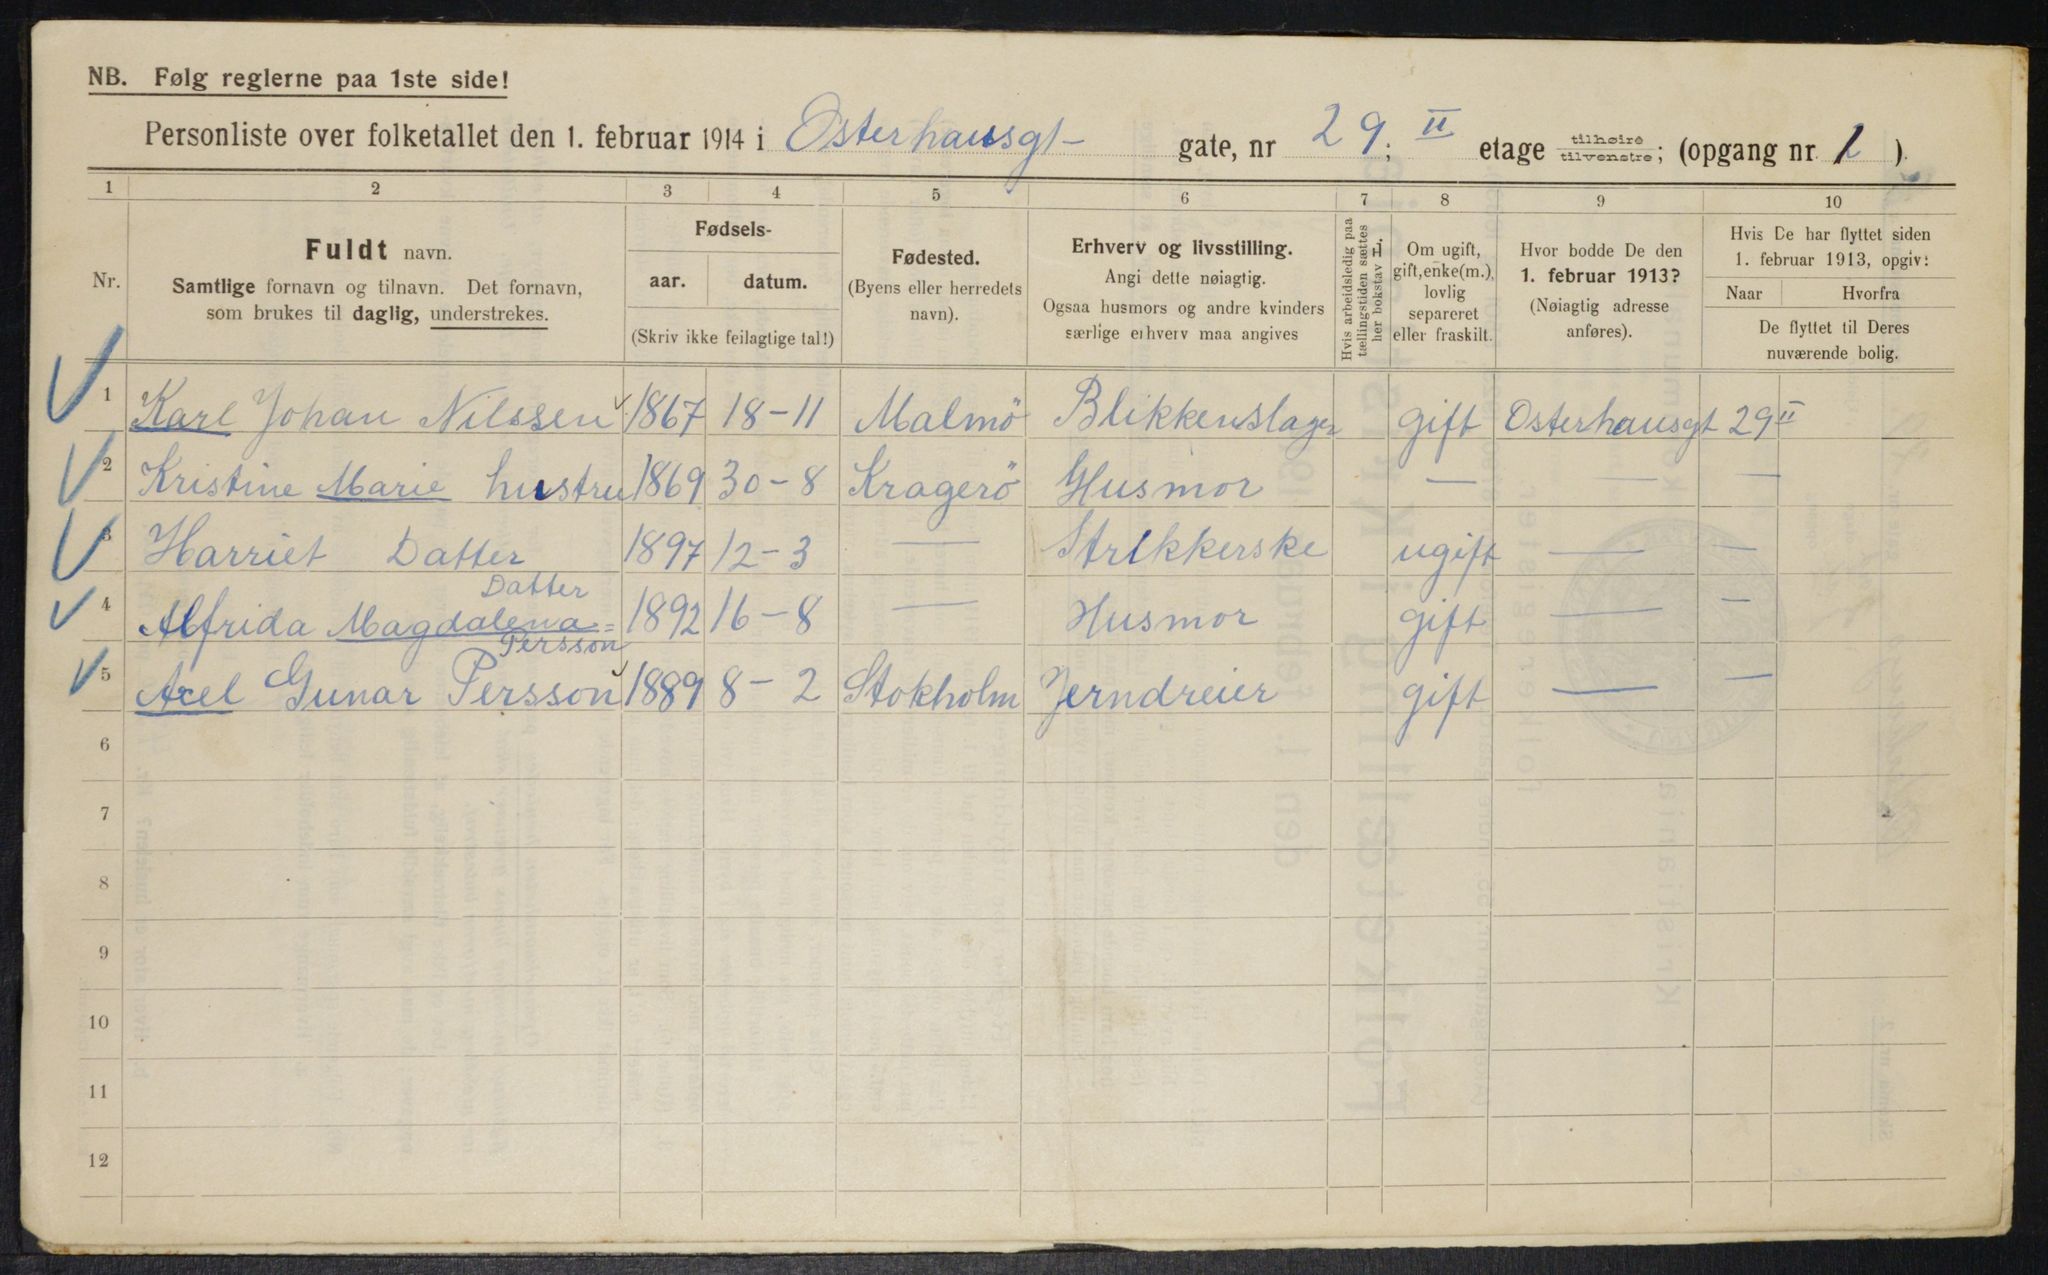 NB. Følg reglerne paa 1ste side!
Personliste over folketallet den 1. februar 1914 i Osterhausgt- gate, nr 29; II etage tilhøire/tilvenstre; (opgang nr. 1 ).
1 2 3 4 5 6 7 8 9 10
Nr.
Fuldt navn.
Samtlige fornavn og tilnavn. Det fornavn,
som brukes til daglig, understrekes.
Fødsels-
aar. datum.
(Skriv ikke feilagtige tal!)
Fødested.
(Byens eller herredets
navn).
Erhverv og livsstilling.
Angi dette nøiagtig.
Ogsaa husmors og andre kvinders
særlige erhverv maa angives
Hvis arbeidsledig paa
tællingstiden sættes
her bokstav L.
Om ugift,
gift, enke(m.),
lovlig
separeret
eller fraskilt.
Hvor bodde De den
1. februar 1913?
(Nøiagtig adresse
anføres).
Hvis De har flyttet siden
1. februar 1913, opgiv:
Naar Hvorfra
De flyttet til Deres
nuværende bolig.
1 Karl Johan Nilssen 1867 18-11 Malmö Blikkenslager gift Osterhausgt 29 II
2 Kristine Marie hustru 1869 30-8 Kragerö Husmor — — —
3 Harriet Datter 1897 12-3 — Strikkerske ugift — —
Datter
4 Alfrida Magdalena= 1892 16-8 — Husmor gift — —
Persson
5 Axel Gunar Persson 1889 8-2 Stokholm Jerndreier gift — —
6
7
8
9
10
11
12